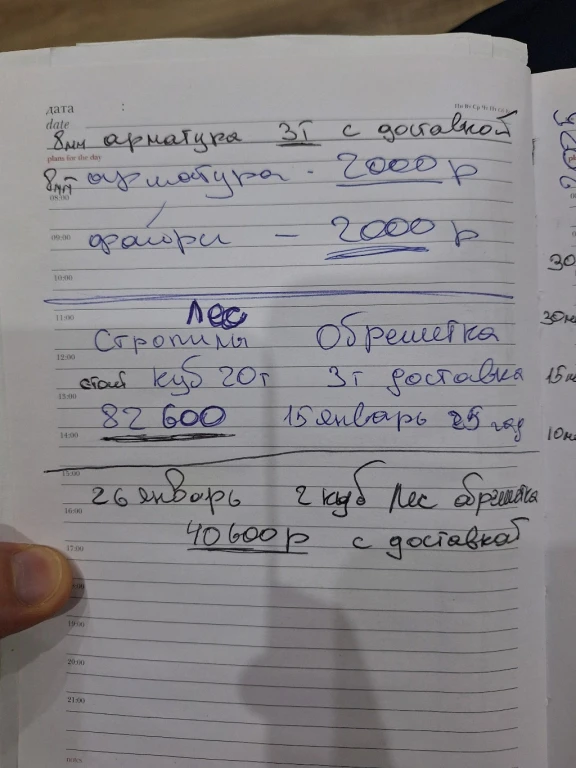 дата :
Пн Вт Ср Чт Пт Сб Вс
date
8мм арматура 3т с доставкой
plans for the day
8мм арматура - 2000 р
08:00
09:00
- 2000 р
10:00
11:00
Лес
Стропилы Обрешетка
12:00
стоит куб 20т 3т доставка
13:00
82 600 15 январь 25 год
14:00
15:00
26 январь 2 куб лес обрешетка
16:00
40600 р с доставкой
17:00
18:00
19:00
20:00
21:00
notes
30
30м
15м
10м